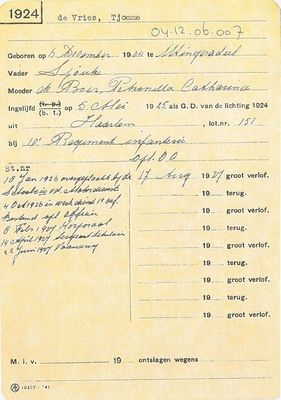 1924
de Vries, Tjomme
04.12.06.007
Geboren op 6 December 1904 te Utingeradeel
Vader Sjouke
Moeder de Boer, Petronella Catharina
Ingelijfd (v. p.) (b. t.) op 5 Mei 1925 als G. D. van de lichting 1924
uit Haarlem, lot.nr. 151
bij 10e Regiment infanterie
St.nr
18 Jan 1926 overgeplaatst bij de
4 Oct 1926 in werk. dienst
8 Febr 1927 Korporaal
14 April 1927 Sergeant
22 Juni 1927 Vaandrig
17 Aug 1927 groot verlof.
19 terug.
19 groot verlof.
19 terug.
19 groot verlof.
19 terug.
19 groot verlof.
19 terug.
19 groot verlof.
19 terug.
19 groot verlof.
M. i. v. 19 ontslagen wegens
10207 - '41